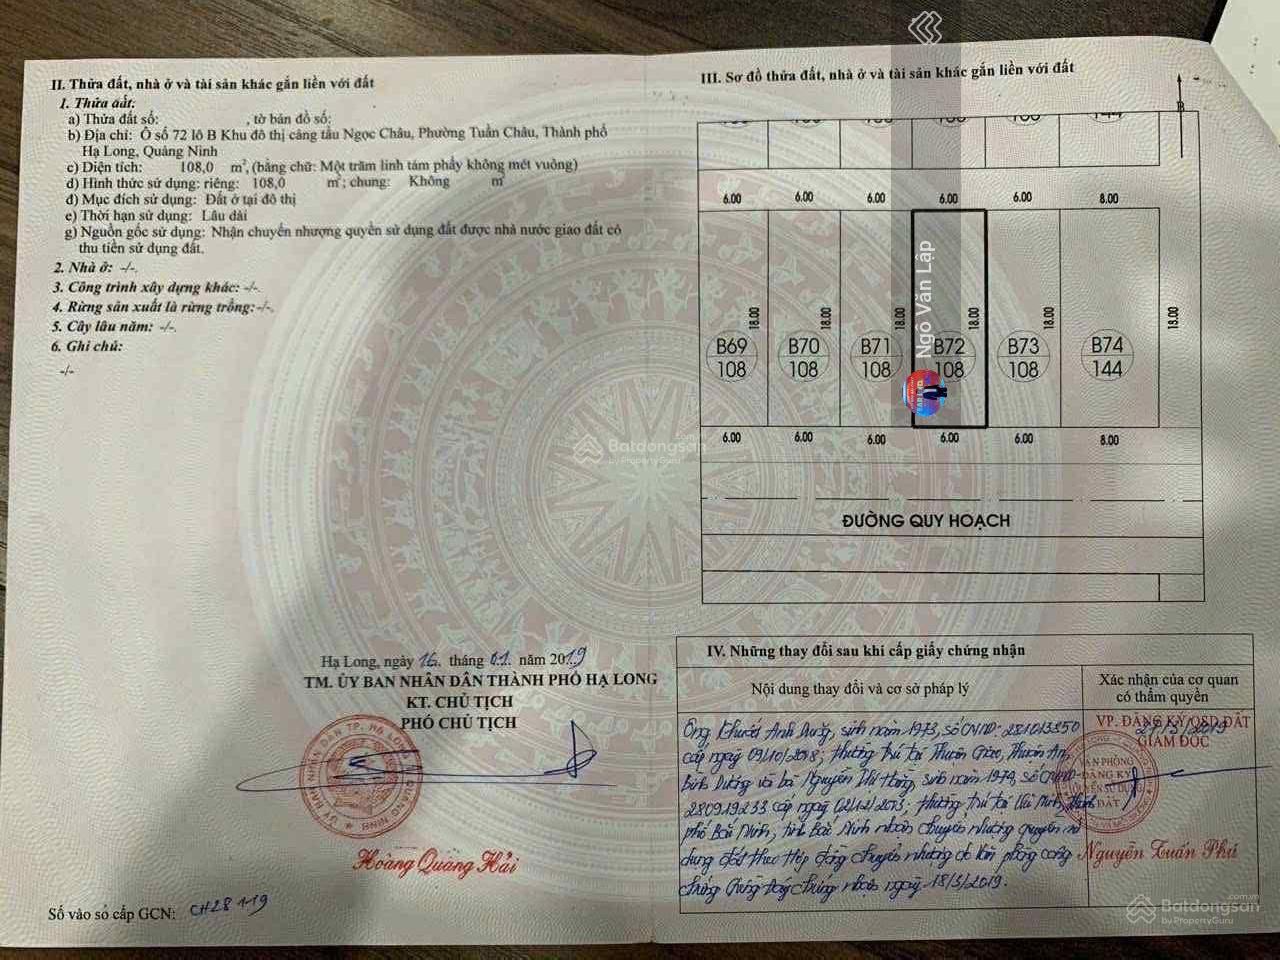 II. Thửa đất, nhà ở và tài sản khác gắn liền với đất
1. Thửa đất:
a) Thửa đất số: , tờ bản đồ số:
b) Địa chỉ: Ô số 72 lô B Khu đô thị cảng tầu Ngọc Châu, Phường Tuần Châu, Thành phố
Hạ Long, Quảng Ninh
c) Diện tích: 108,0 m², (bằng chữ: Một trăm linh tám phẩy không mét vuông)
d) Hình thức sử dụng: riêng: 108,0 m²; chung: Không m²
đ) Mục đích sử dụng: Đất ở tại đô thị
e) Thời hạn sử dụng: Lâu dài
g) Nguồn gốc sử dụng: Nhận chuyển nhượng quyền sử dụng đất được nhà nước giao đất có
thu tiền sử dụng đất.
2. Nhà ở: -/-.
3. Công trình xây dựng khác: -/-.
4. Rừng sản xuất là rừng trồng: -/-.
5. Cây lâu năm: -/-.
6. Ghi chú:
-/-
Hạ Long, ngày 16 tháng 01 năm 2019
TM. ỦY BAN NHÂN DÂN THÀNH PHỐ HẠ LONG
KT. CHỦ TỊCH
PHÓ CHỦ TỊCH
Hoàng Quang Hải
Số vào sổ cấp GCN: CH28119
III. Sơ đồ thửa đất, nhà ở và tài sản khác gắn liền với đất
B
6.00 6.00 6.00 6.00 6.00 8.00
18.00 18.00 18.00 18.00 18.00 18.00
B69 B70 B71 B72 B73 B74
108 108 108 108 108 144
6.00 6.00 6.00 6.00 6.00 8.00
ĐƯỜNG QUY HOẠCH
Ngô Văn Lập
IV. Những thay đổi sau khi cấp giấy chứng nhận
Nội dung thay đổi và cơ sở pháp lý
Xác nhận của cơ quan
có thẩm quyền
Ông Khuất Anh Duỹ, sinh năm 1973, số CMND: 281013350
cấp ngày 09/10/2018; thường trú tại Thuận Giao, Thuận An,
Bình Dương và bà Nguyễn Thị Hằng, sinh năm 1979, số CMND
280919233 cấp ngày 02/12/2013; thường trú tại thành
phố Bắc Ninh, tỉnh Bắc Ninh nhận chuyển nhượng quyền sử
dụng đất theo hợp đồng chuyển nhượng do Văn phòng công
chứng chứng nhận ngày 18/3/2019.
27/3/2019
VP. ĐĂNG KÝ QSD ĐẤT
GIÁM ĐỐC
VĂN PHÒNG
ĐĂNG KÝ
QUYỀN SỬ DỤNG
ĐẤT
Nguyễn Tuấn Phú
Batdongsan
by PropertyGuru
Batdongsan
.com.vn
by PropertyGuru